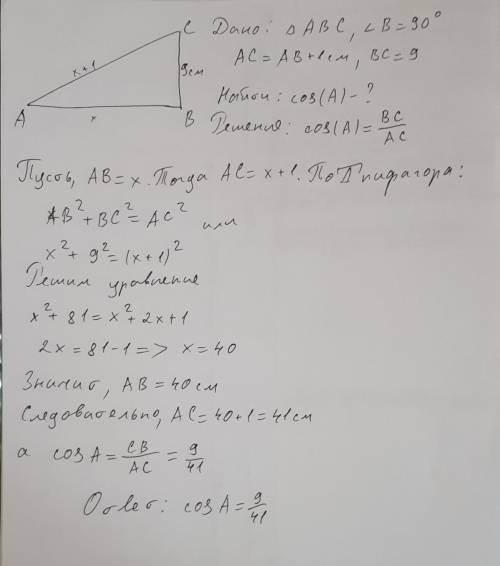 C Дано: △ABC, ∠B=90°
x+1 9см AC=AB+1см, BC=9
Найти: cos(A)-?
A x B Решение: cos(A)=BC/AC
Пусть, AB=x. Тогда AC=x+1. По Т Пифагора:
AB²+BC²=AC² или
x²+9²=(x+1)²
Решим уравнение
x²+81=x²+2x+1
2x=81-1=> x=40
Значит, AB=40см
Следовательно, AC=40+1=41см
а cosA=CB/AC=9/41
Ответ: cosA=9/41